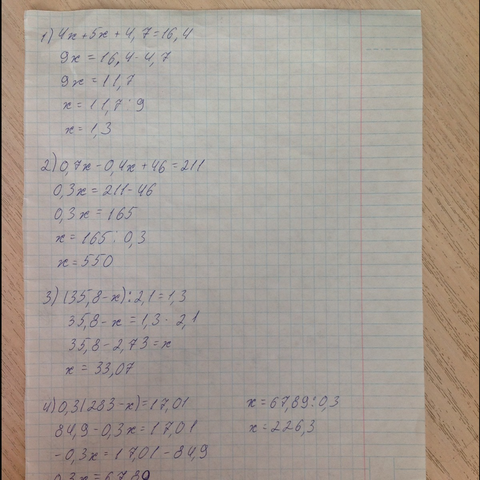 1) 4x+5x+4,7=16,4
9x=16,4-4,7
9x=11,7
x=11,7:9
x=1,3
2) 0,7x-0,4x+46=211
0,3x=211-46
0,3x=165
x=165:0,3
x=550
3) (35,8-x):2,1=1,3
35,8-x=1,3·2,1
35,8-2,73=x
x=33,07
4) 0,3(283-x)=17,01
84,9-0,3x=17,01
-0,3x=17,01-84,9
0,3x=67,89
x=67,89:0,3
x=226,3